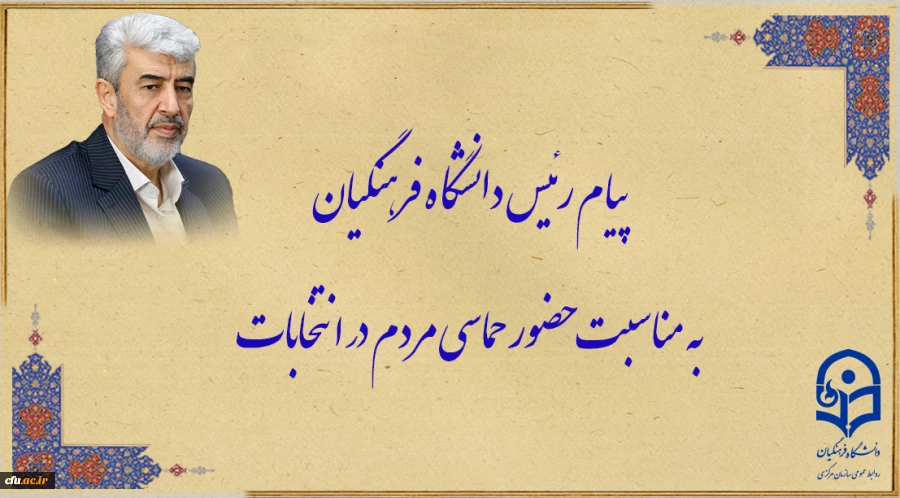 پیام رئیس دانشگاه فرهنگیان
به مناسبت حضور حماسی مردم در انتخابات
دانشگاه فرهنگیان
روابط عمومی سازمان مرکزی
cfu.ac.ir